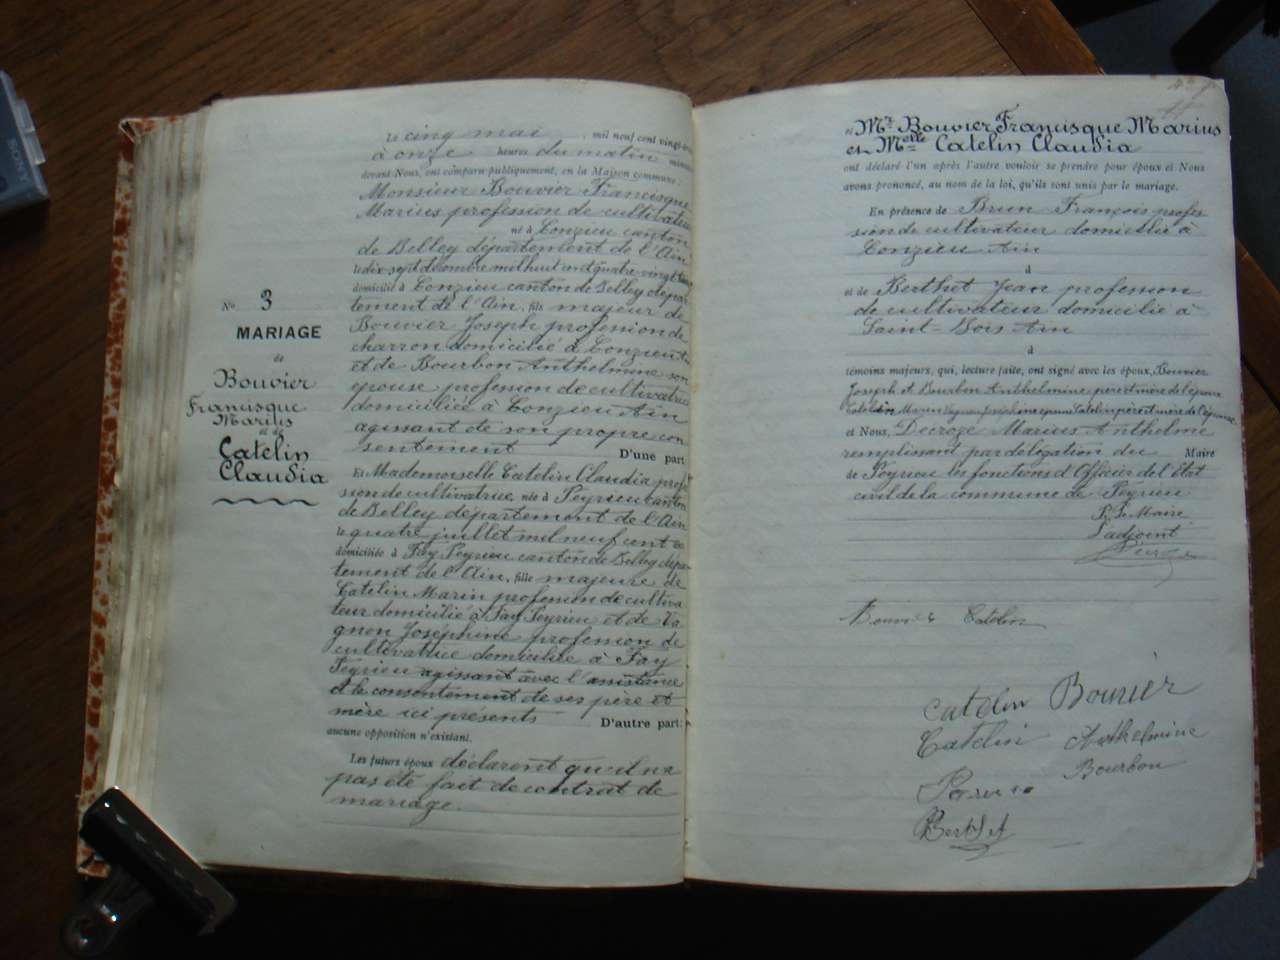 SONY
N° 3
MARIAGE
de
Bouvier
Francisque
Marius
et de
Catelin
Claudia
Le cinq mai , mil neuf cent vingt
à onze heures du matin
devant Nous, ont comparu publiquement, en la Maison commune :
Monsieur Bouvier Francisque
Marius profession de cultivateur
né à Conzieu canton
de Belley département de l'Ain
le dix sept décembre mil huit cent quatre vingt
domicilié à Conzieu canton de Belley dépar
tement de l'Ain, fils majeur de
Bouvier Joseph profession de
charron domicilié à Conzieu Ain
et de Bourbon Anthelmine son
épouse profession de cultivatrice
domiciliée à Conzieu Ain
agissant de son propre con
sentement D'une part
Et Mademoiselle Catelin Claudia prof
sion de cultivatrice, née à Peyrieu canton
de Belley département de l'Ain
le quatre juillet mil neuf cent
domiciliée à Fay Peyrieu canton de Belley dépar
tement de l'Ain, fille majeure de
Catelin Marin profession de cultiva
teur domicilié à Fay Peyrieu et de Va
gnon Joséphine profession de
cultivatrice domiciliée à Fay
Peyrieu agissant avec l'assistance
et le consentement de ses père et
mère ici présents D'autre part :
aucune opposition n'existant.
Les futurs époux déclarent qu'il n'a
pas été fait de contrat de
mariage.
et Mr. Bouvier Francisque Marius
et Melle Catelin Claudia
ont déclaré l'un après l'autre vouloir se prendre pour époux et Nous
avons prononcé, au nom de la loi, qu'ils sont unis par le mariage.
En présence de Brun François profes
sion de cultivateur domicilié à
Conzieu Ain
à
et de Berthet Jean profession
de cultivateur domicilié à
Saint-Bois Ain
à
témoins majeurs, qui, lecture faite, ont signé avec les époux, Bouvier
Joseph et Bourbon Anthelmine père et mère de l'époux
Catelin Marin Vagnon Joséphine épouse Catelin père et mère de l'épouse
et Nous, Decroze Marius Anthelme
remplissant par délégation du Maire
de Peyrieu les fonctions d'Officier de l'Etat
civil de la commune de Peyrieu
P. le Maire
l'adjoint
Bouvier Catelin
Catelin Bouvier
Catelin Anthelmine
Bourbon
Berthet